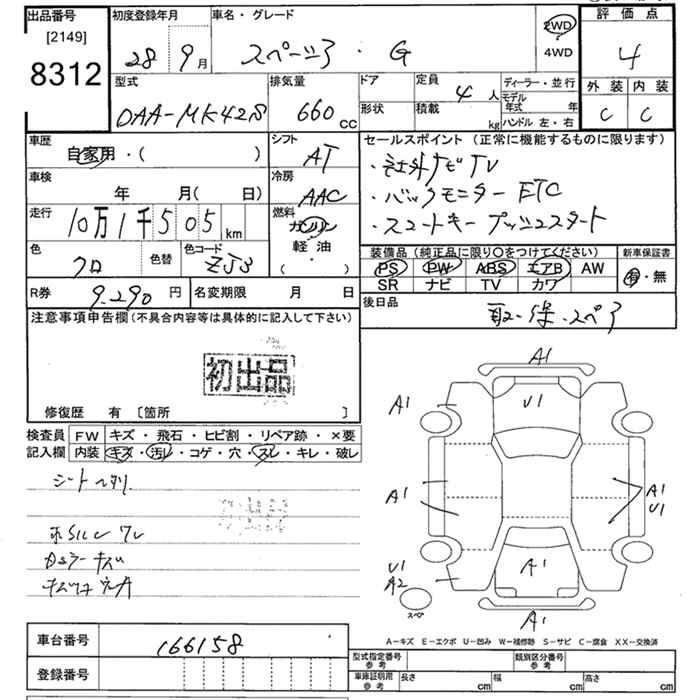 出品番号
[2149]
8312
初度登録年月
28 9月
車名・グレード
スペーシア・G
2WD
4WD
評価点
4
外装 内装
C C
型式
DAA-MK42S
排気量
660 CC
ドア
形状
定員
4人
積載
kg
ディーラー・並行
モデル年式 年
ハンドル 左・右
車歴
自家用・( )
シフト
AT
セールスポイント (正常に機能するものに限ります)
・社外ナビTV
・バックモニター ETC
・スマートキー プッシュスタート
車検
年 月( 日)
冷房
AAC
走行
10万1千505 km
燃料
ガソリン
軽・油
( ・ )
色
クロ
色替
色コード
ZJ3
装備品 (純正品に限り〇をつけてください)
PS PW ABS エアB AW
SR ナビ TV カワ
新車保証書
有・無
R券
9,290 円
名変期限 月 日
後日品
取・保・スペア
注意事項申告欄 (不具合内容等は具体的に記入して下さい)
初出品
修復歴 有 [箇所 ]
検査員
記入欄
FW キズ・飛石・ヒビ割・リペア跡・×要
内装 キズ・汚レ・コゲ・穴・スレ・キレ・破レ
シートヘタリ
カメラ キズ
A1
A1
U1
A1
A1
U1
U1
A2
A1
A1
スペア
A-キズ E-エクボ U-凹み W-補修跡 S-サビ C-腐食 XX-交換済
車台番号
166158
登録番号
型式指定番号
参考
類別区分番号
参考
車庫証明用
参考
長さ cm 幅 cm 高さ cm